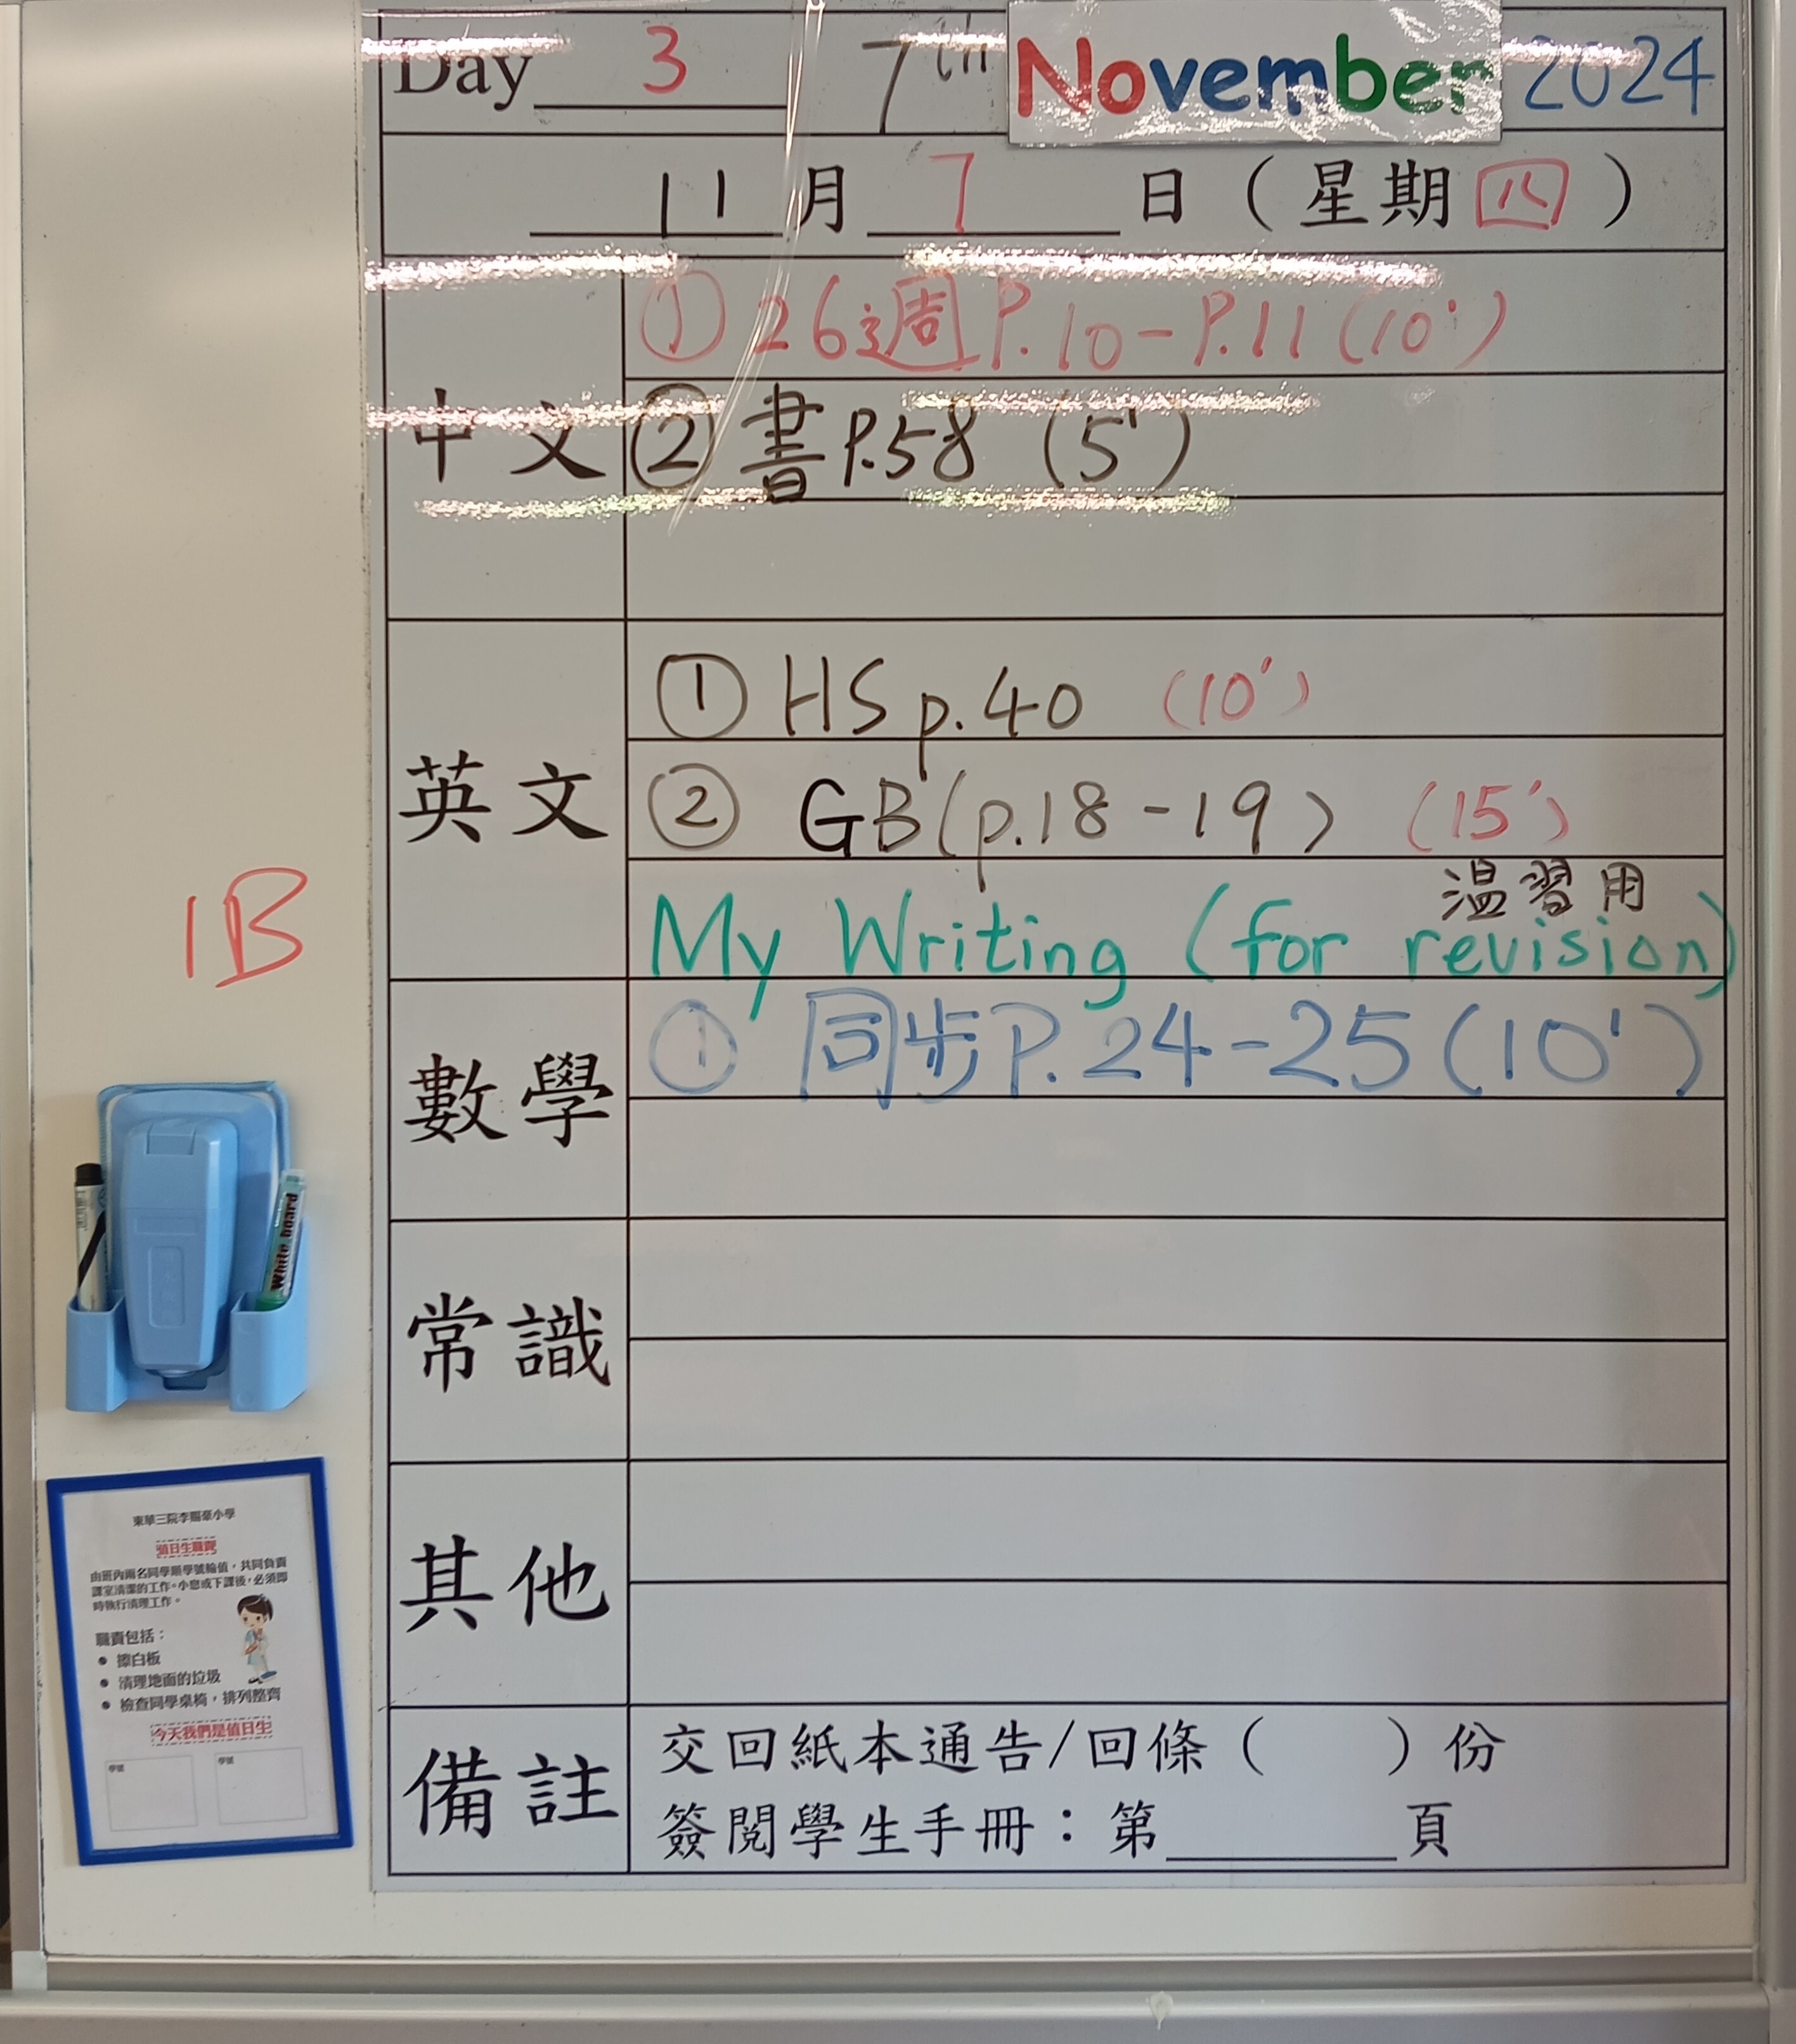 Day 3 7th November 2024
11月7日(星期四)
中文
① 26週P.10-P.11(10')
② 書P.58 (5')
英文
① HS p.40 (10')
② GB(p.18-19) (15')
温習用
My Writing (for revision)
數學
① 同步P.24-25(10')
常識
其他
備註
交回紙本通告/回條( )份
簽閱學生手冊:第______頁
1B
White board
東華三院李賜豪小學
值日生職責
由班內兩名同學順學號輪值,共同負責
課室清潔的工作。小息或下課後,必須即
時執行清理工作。
職責包括:
● 擦白板
● 清理地面的垃圾
● 檢查同學桌椅,排列整齊
今天我們是值日生
學號 學號